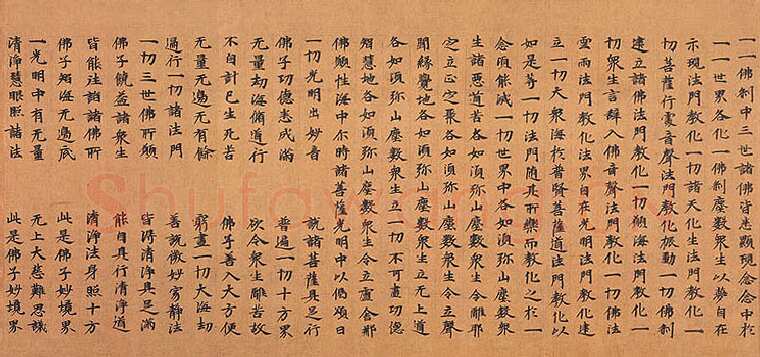 一一佛刹中三世諸佛皆悉顯現念念中於
一一世界各化一佛刹塵數衆生以夢自在
示現法門教化一切諸天化生法門教化一
切菩薩行處音聲法門教化振動一切佛刹
建立諸佛法門教化一切願海法門教化一
切衆生言辭入佛音聲法門教化一切佛法
雲雨法門教化法界自在光明法門教化建
立一切大衆海於普賢菩薩道法門教化以
如是等一切法門隨其所樂而教化之於一
念須能滅一切世界中各如須弥山塵數衆
生諸惡道苦各如須弥山塵數衆生令離耶
定立正定聚各如須弥山塵數衆生令立聲
聞緣覺地各如須弥山塵數衆生立无上道
各如須弥山塵數衆生立一切不可盡功德
智慧地各如須弥山塵數衆生令立盧舍那
佛願性海中尒時諸菩薩光明中以偈頌曰
一切光明出妙音 說諸菩薩具足行
佛子功德悉成滿 普遍一切十方界
无量劫海脩道行 欲令衆生離苦故
不自計己生死苦 佛子善入大方便
无量无邊无有餘 窮盡一切大海劫
遍行一切諸法門 善說微妙寂靜法
一切三世佛所願 皆得清淨具足滿
佛子饒益諸衆生 能自具行清淨道
皆能往詣諸佛所 清淨法身照十方
佛子智海无邊底 此是佛子妙境界
一光明中有无量 无上大悲難思議
清淨慧眼照諸法 此是佛子妙境界